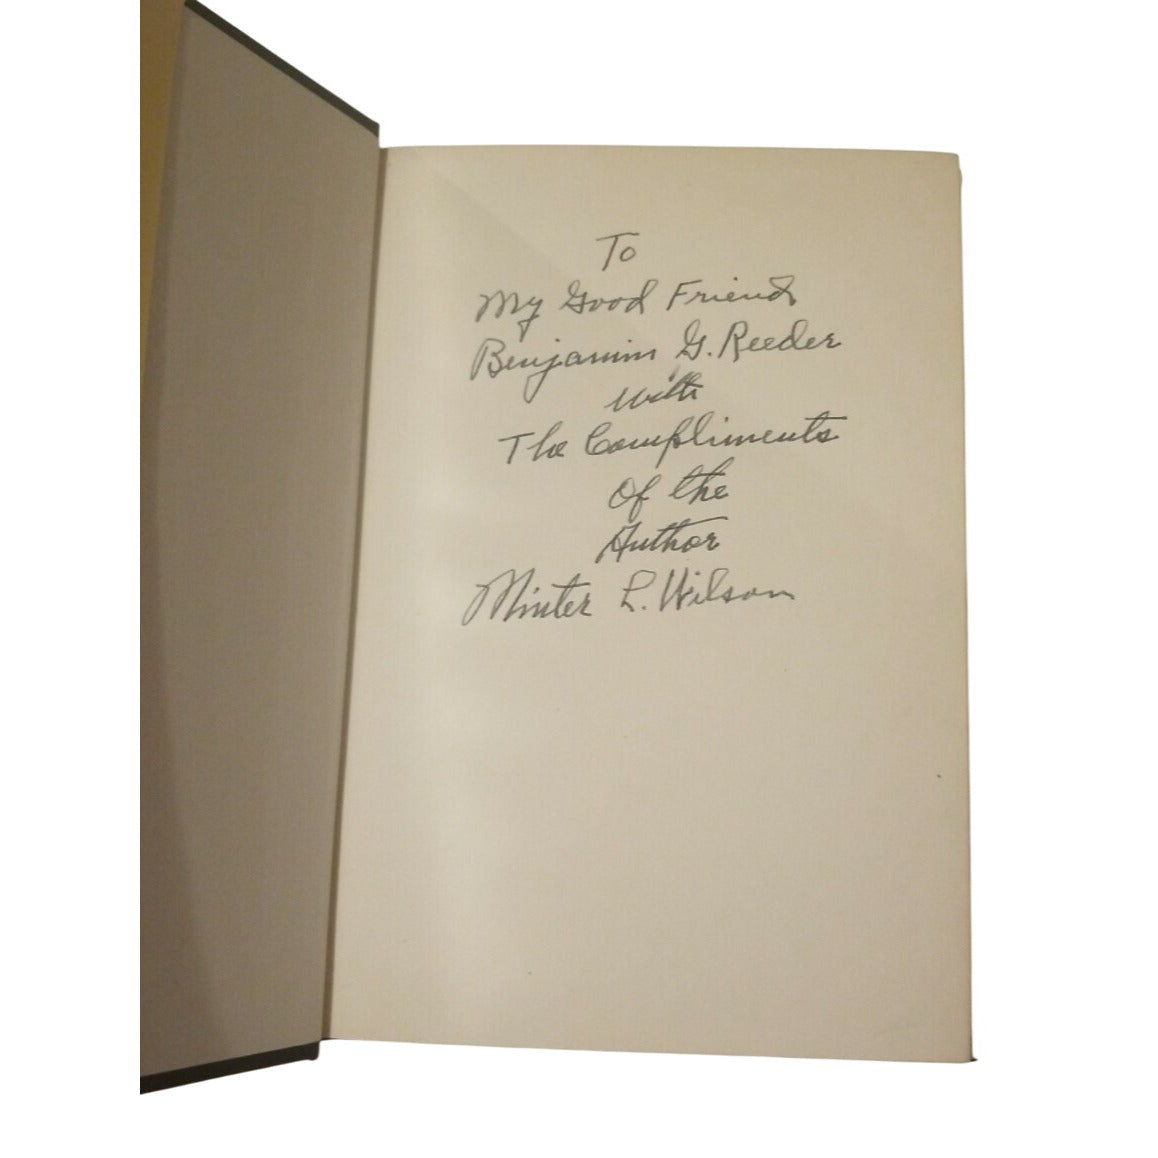 To
My Good Friend
Benjamin G. Reeder
with
The Compliments
Of the
Author
Minter L. Wilson